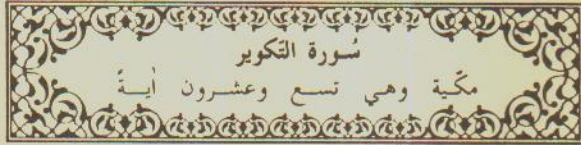 سُورة التّكوير
مكّية وهي تسع وعشرون أيةً